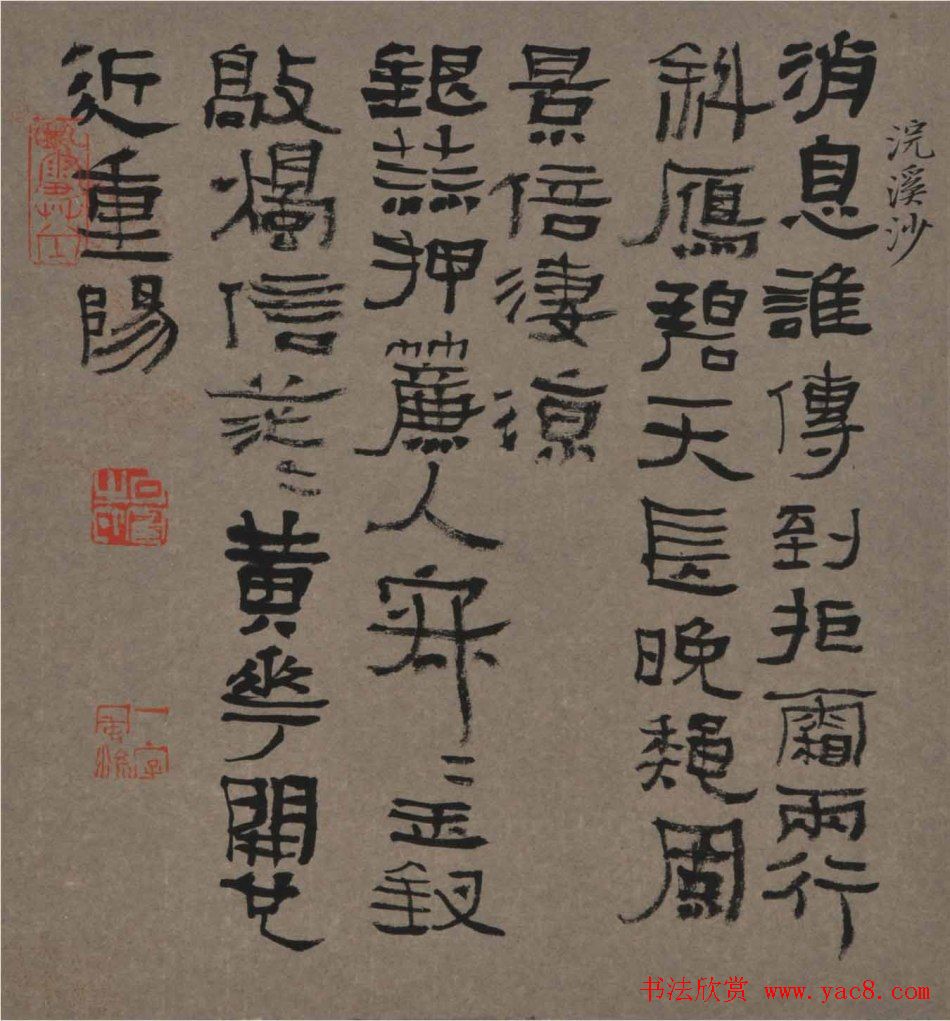 浣溪沙
消息誰傳到拒霜兩行
斜鴈碧天長晚龝風
景倍淒涼
銀蒜押簾人寂〻玉釵
敲燭信茫〻黃華開也
近重陽
一字
書法欣赏 www.yac8.com